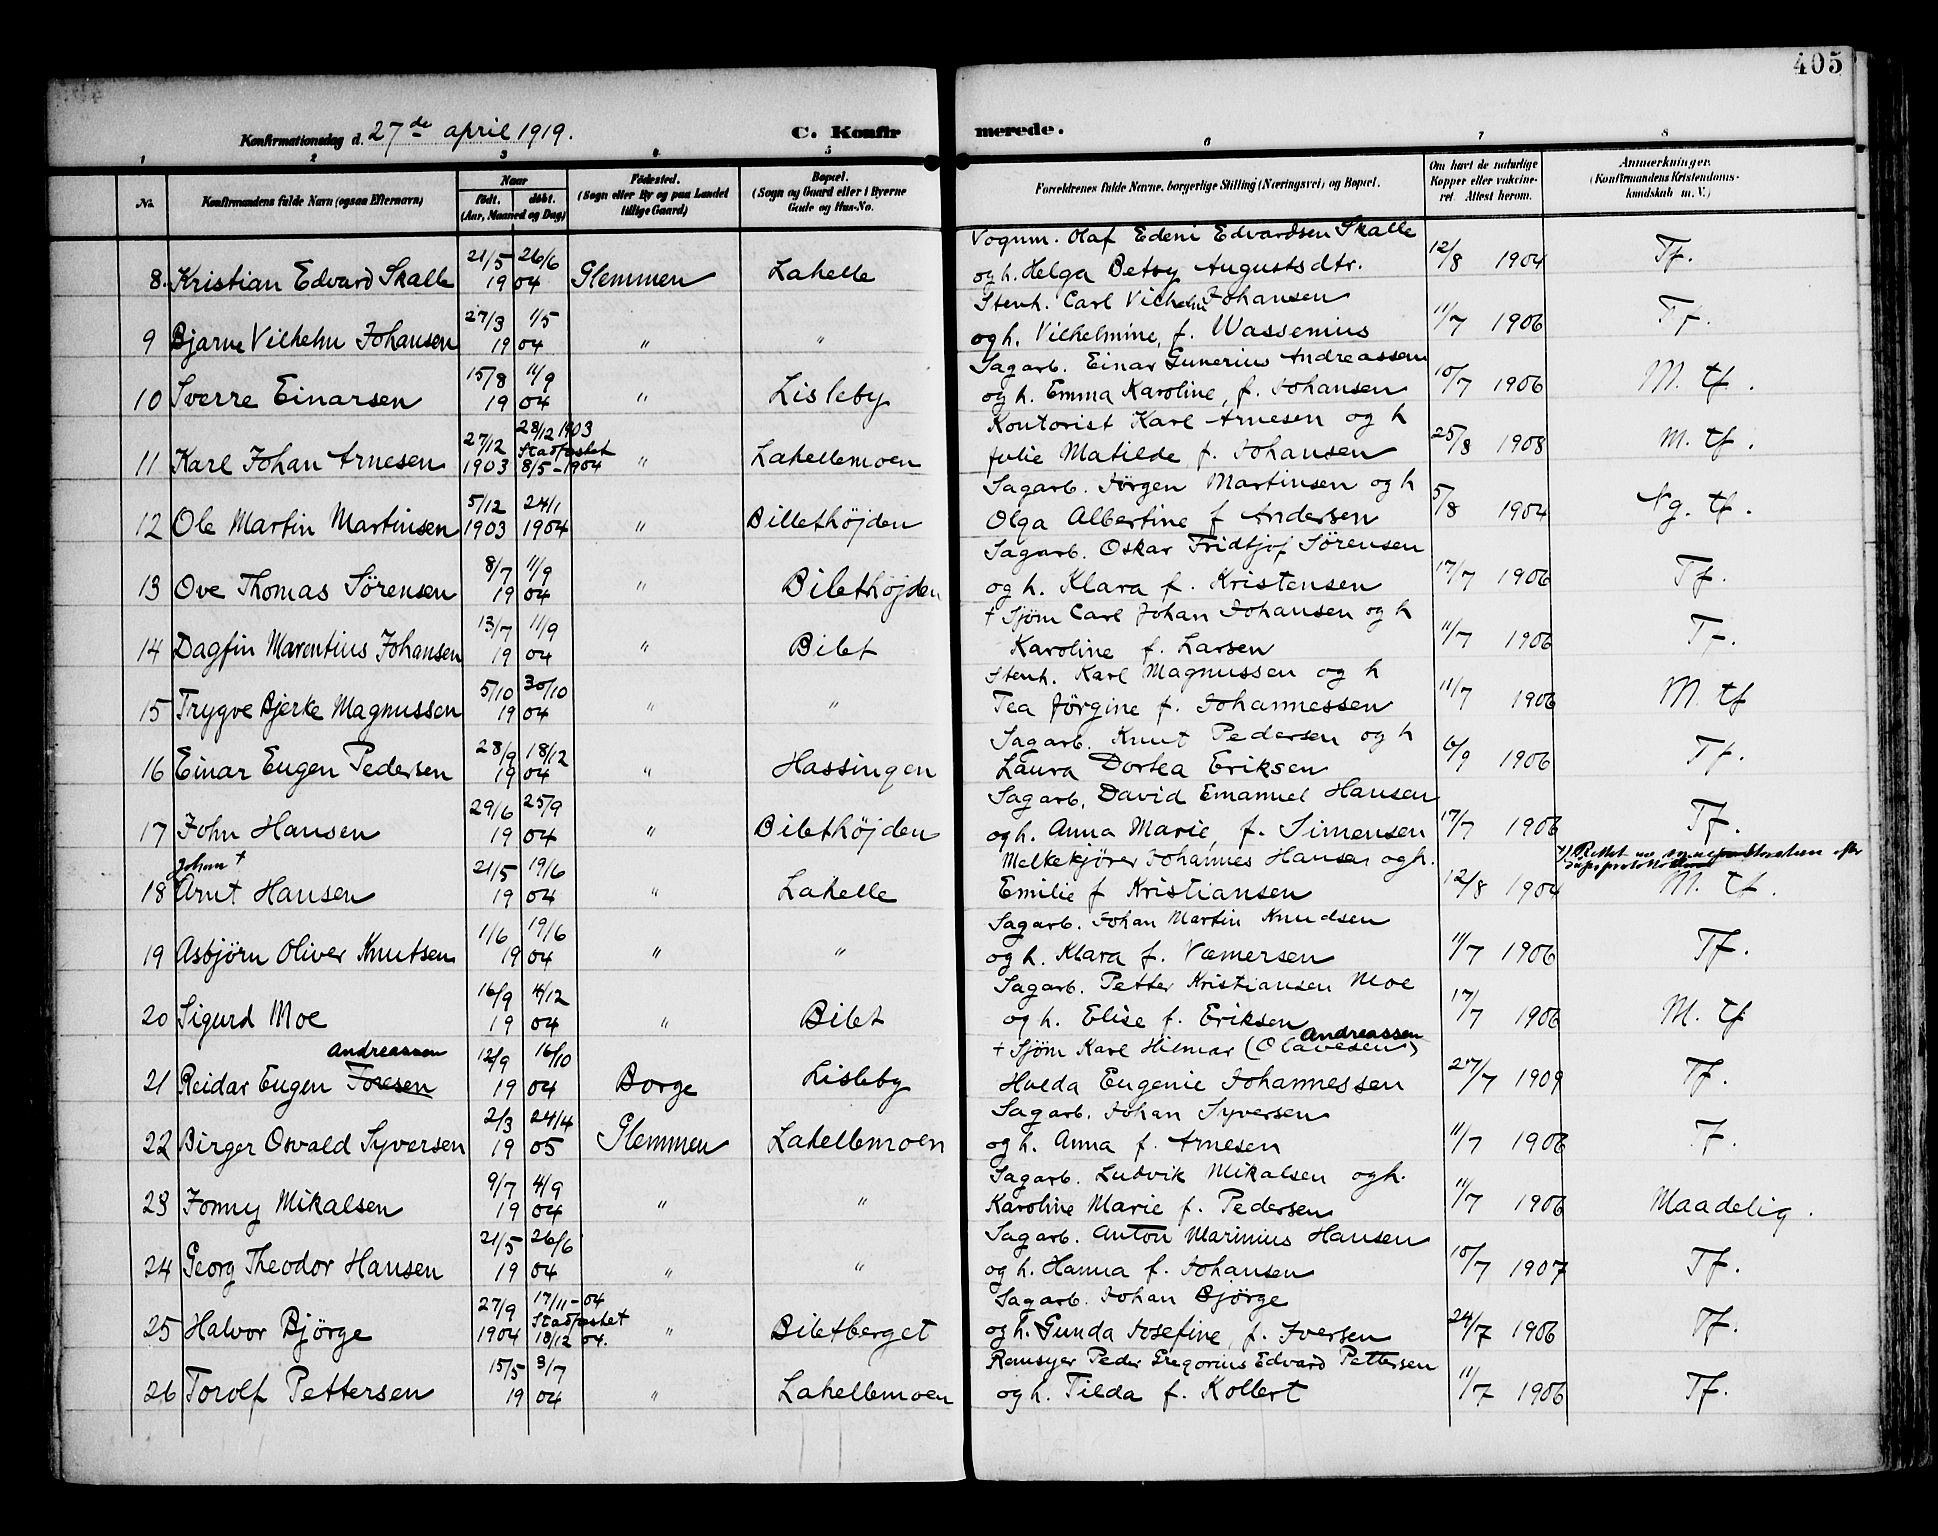 405
Konfirmationsdag d. 27de april 1919.
C. Konfirmerede.
1 2 3 4 5 6 7 8
No.
Konfirmandens fulde Navn (ogsaa Efternavn)
Naar
født. døbt.
(Aar, Maaned og Dag)
Fødested.
(Sogn eller By og paa Landet
tillige Gaard)
Bopæl.
(Sogn og Gaard eller i Byerne
Gade og Hus-No.
Forældrenes fulde Navne, borgerlige Stilling (Næringsvei) og Bopæl.
Om havt de naturlige
Kopper eller vakcine-
ret. Attest herom.
Anmærkninger.
(Konfirmandens Kristendoms-
kundskab m. V.)
Vognm. Olaf Edeni Edvardsen Skalle
8. Kristian Edvard Skalle 21/5 26/6 1904 Glemmen Lahelle og h. Helga Betsy Augustsdtr. 12/8 1904 Tf.
Stenh. Carl Vilhelm Johansen
9 Bjarne Vilhelm Johansen 27/3 1/5 1904 " " og h. Vilhelmine, f. Wassenius 11/7 1906 Tf.
Sagarb. Einar Gunerius Andreassen
10 Sverre Einarsen 15/8 11/9 1904 " Lisleby og h. Emma Karoline, f. Johansen 10/7 1906 M. tf.
Kontorist Karl Arnesen og h
11 Karl Johan Arnesen 27/12 1903 28/12 1903 Stadfæstet 8/5-1904 " Lahellemoen Julie Matilde f. Johansen 25/8 1908 M. tf.
Sagarb. Jørgen Martinsen og h
12 Ole Martin Martinsen 5/12 1903 24/1 1904 " Billethöjden Olga Albertine f Andersen 5/8 1904 Ng. tf.
Sagarb. Oskar Fridtjof Sørensen
13 Ove Thomas Sörensen 8/7 11/9 1904 " Bilethöjden og h. Klara f. Kristensen 17/7 1906 Tf.
† Sjøm Carl Johan Johansen og h
14 Dagfin Marentius Johansen 13/7 11/9 1904 " Bilet Karoline f. Larsen 11/7 1906 Tf.
Stenh. Karl Magnussen og h
15 Trygve Bjerke Magnussen 5/10 30/10 1904 " " Tea Jørgine f. Johannessen 11/7 1906 M. tf
Sagarb. Knut Pedersen og h
16 Einar Eugen Pedersen 28/9 18/12 1904 " Hassingen Laura Dortea Eriksen 6/9 1906 Tf.
Sagarb. David Emanuel Hansen
17 John Hansen 29/6 25/9 1904 " Bilethöjden og h. Anna Marie, f. Simensen 17/7 1906 Tf.
Melkekjører Johannes Hansen og h.
Johan †
18 Arnt Hansen 21/5 19/6 1904 " Lahelle Emilie f Kristiansen 12/8 1904 M. tf.
Sagarb. Johan Martin Knudsen
19 Asbjørn Oliver Knutsen 1/6 19/6 1904 " " og h. Klara f. Værnersen 11/7 1906 Tf.
Sagarb. Petter Kristiansen Moe
20 Sigurd Moe 16/9 4/12 1904 " Bilet og h. Elise f. Eriksen 17/7 1906 M. tf
Andreassen Andreassen
† Sjøm Karl Hilmar (Olavesen)
21 Reidar Eugen Foresen 12/9 16/10 1904 Borge Lisleby Hulda Eugenie Johannessen 27/7 1909 Tf.
Sagarb. Johan Syversen
22 Birger Osvald Syversen 2/3 24/4 1905 Glemmen Lahellemoen og h. Anna f. Arnesen 11/7 1906 Tf.
Sagarb. Ludvik Mikalsen og h.
23 Jonny Mikalsen 9/7 4/9 1904 " " Karoline Marie f. Pedersen 11/7 1906 Maadelig.
Sagarb. Anton Marinius Hansen
24 Georg Theodor Hansen 21/5 26/6 1904 " " og h. Hanna f. Johansen 10/7 1907 Tf.
Sagarb. Johan Bjørge
25 Halvor Bjørge 27/9 1904 17/11-04 Stadfæstet 18/12 04. " Biletberget og h. Gunda Josefine, f. Iversen 24/7 1906 Tf.
Remsyer Peder Gregorius Edvard Pettersen
26 Torolf Pettersen 15/5 3/7 1904 " Lahellemoen og h. Tilda f. Kollert 11/7 1906 Tf.